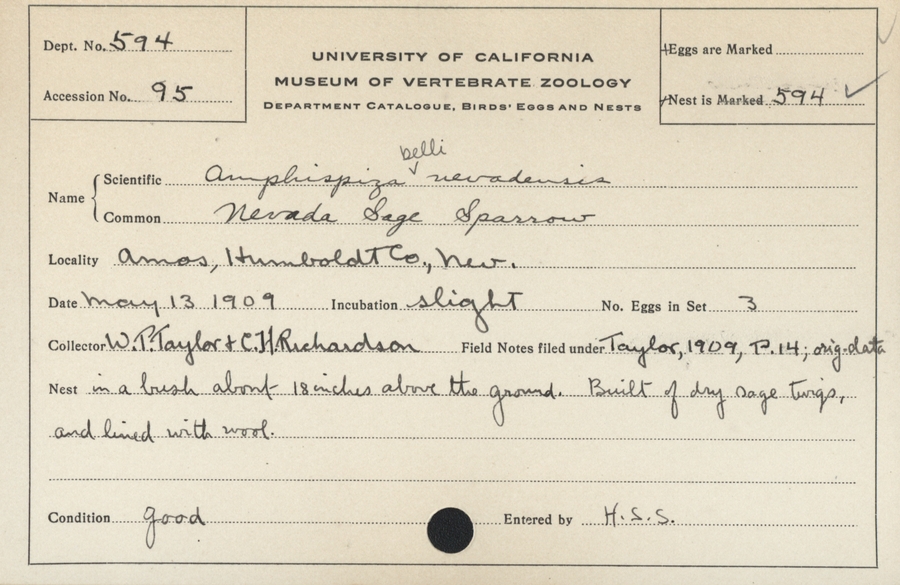 Dept. No. 594
Accession No. 95
UNIVERSITY OF CALIFORNIA
MUSEUM OF VERTEBRATE ZOOLOGY
DEPARTMENT CATALOGUE, BIRDS' EGGS AND NESTS
Eggs are Marked
Nest is Marked 594 ✓
belli
Name { Scientific Amphispiza ˅ nevadensis
Common Nevada Sage Sparrow
Locality Amos, Humboldt Co., Nev.
Date May 13 1909 Incubation slight No. Eggs in Set 3
Collector W.P. Taylor + C.H. Richardson Field Notes filed under Taylor, 1909, P. 14; orig-data
Nest in a bush about 18 inches above the ground. Built of dry sage twigs,
and lined with wool.
Condition good Entered by H.S.S.